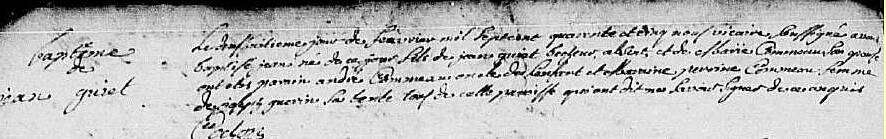 baptême
de
jean guiet
Le dixhuitieme jour de feuvrier mil sept cent quarente et cinq nous vicaire soussigné avons
baptisé jean né de ce jour fils de jean guiet absent et de Marie Commeau sa
ont etés parain andré Commeau oncle de lenfant et Maraine perrine Commeau femme
de joseph guerin sa tente tous de cette paroisse qui ont dit ne scavoir signer de ce enquis